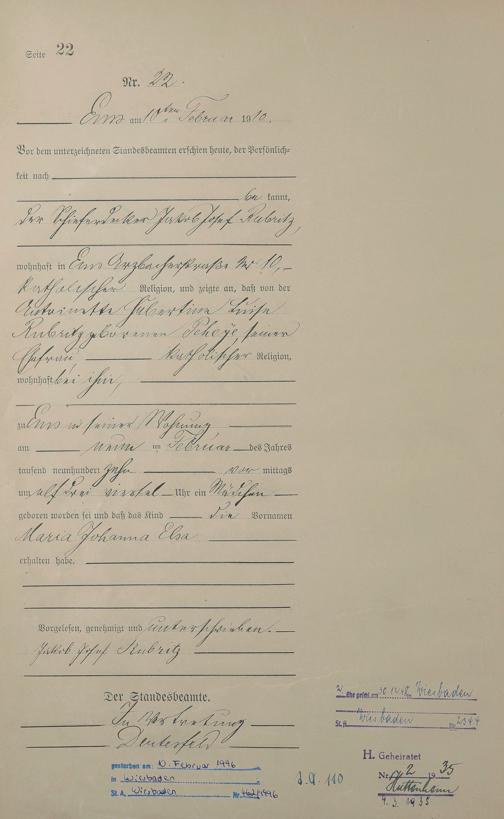 Seite 22
Nr. 22.
Ems am 10ten Februar 1910.
Vor dem unterzeichneten Standesbeamten erschien heute, der Persönlich-
keit nach
be kannt,
der Schieferdecker Jakob Josef Kubritz,
wohnhaft in Ems Arzbacherstraße Nr 10,
katholischer Religion, und zeigte an, daß von der
Antoinette Hubertine Luise
Kubritz geborenen seiner
Ehefrau katholischer Religion,
wohnhaft bei ihm,
zu Ems in seiner Wohnung
am neun ten Februar des Jahres
tausend neunhundert zehn vor mittags
um elf drei viertel Uhr ein Mädchen
geboren worden sei und daß das Kind die Vornamen
Maria Johanna Elsa
erhalten habe.
Vorgelesen, genehmigt und unterschrieben.
Jakob Josef Kubritz
Der Standesbeamte.
In Vertretung
2/ Ehe geschl. am 30.12.48 Wiesbaden
St. A. Wiesbaden Nr. 2344
gestorben am: 10. Februar 1996
in Wiesbaden
St. A. Wiesbaden Nr. 462/1996
110
H. Geheiratet
Nr. 2 1935
9.3.1935